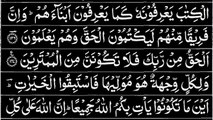 الْكِتٰبَ يَعْرِفُوْنَهٗ كَمَا يَعْرِفُوْنَ اَبْنَآءَهُمْ ؕ وَاِنَّ
فَرِيْقًا مِّنْهُمْ لَيَكْتُمُوْنَ الْحَقَّ وَهُمْ يَعْلَمُوْنَ
اَلْحَقُّ مِنْ رَّبِّكَ فَلَا تَكُوْنَنَّ مِنَ الْمُمْتَرِيْنَ
وَلِكُلٍّ وِّجْهَةٌ هُوَ مُوَلِّيْهَا فَاسْتَبِقُوا الْخَيْرٰتِ ؕ
اَيْنَ مَا تَكُوْنُوْا يَاْتِ بِكُمُ اللّٰهُ جَمِيْعًا ؕ اِنَّ اللّٰهَ عَلٰى كُلِّ